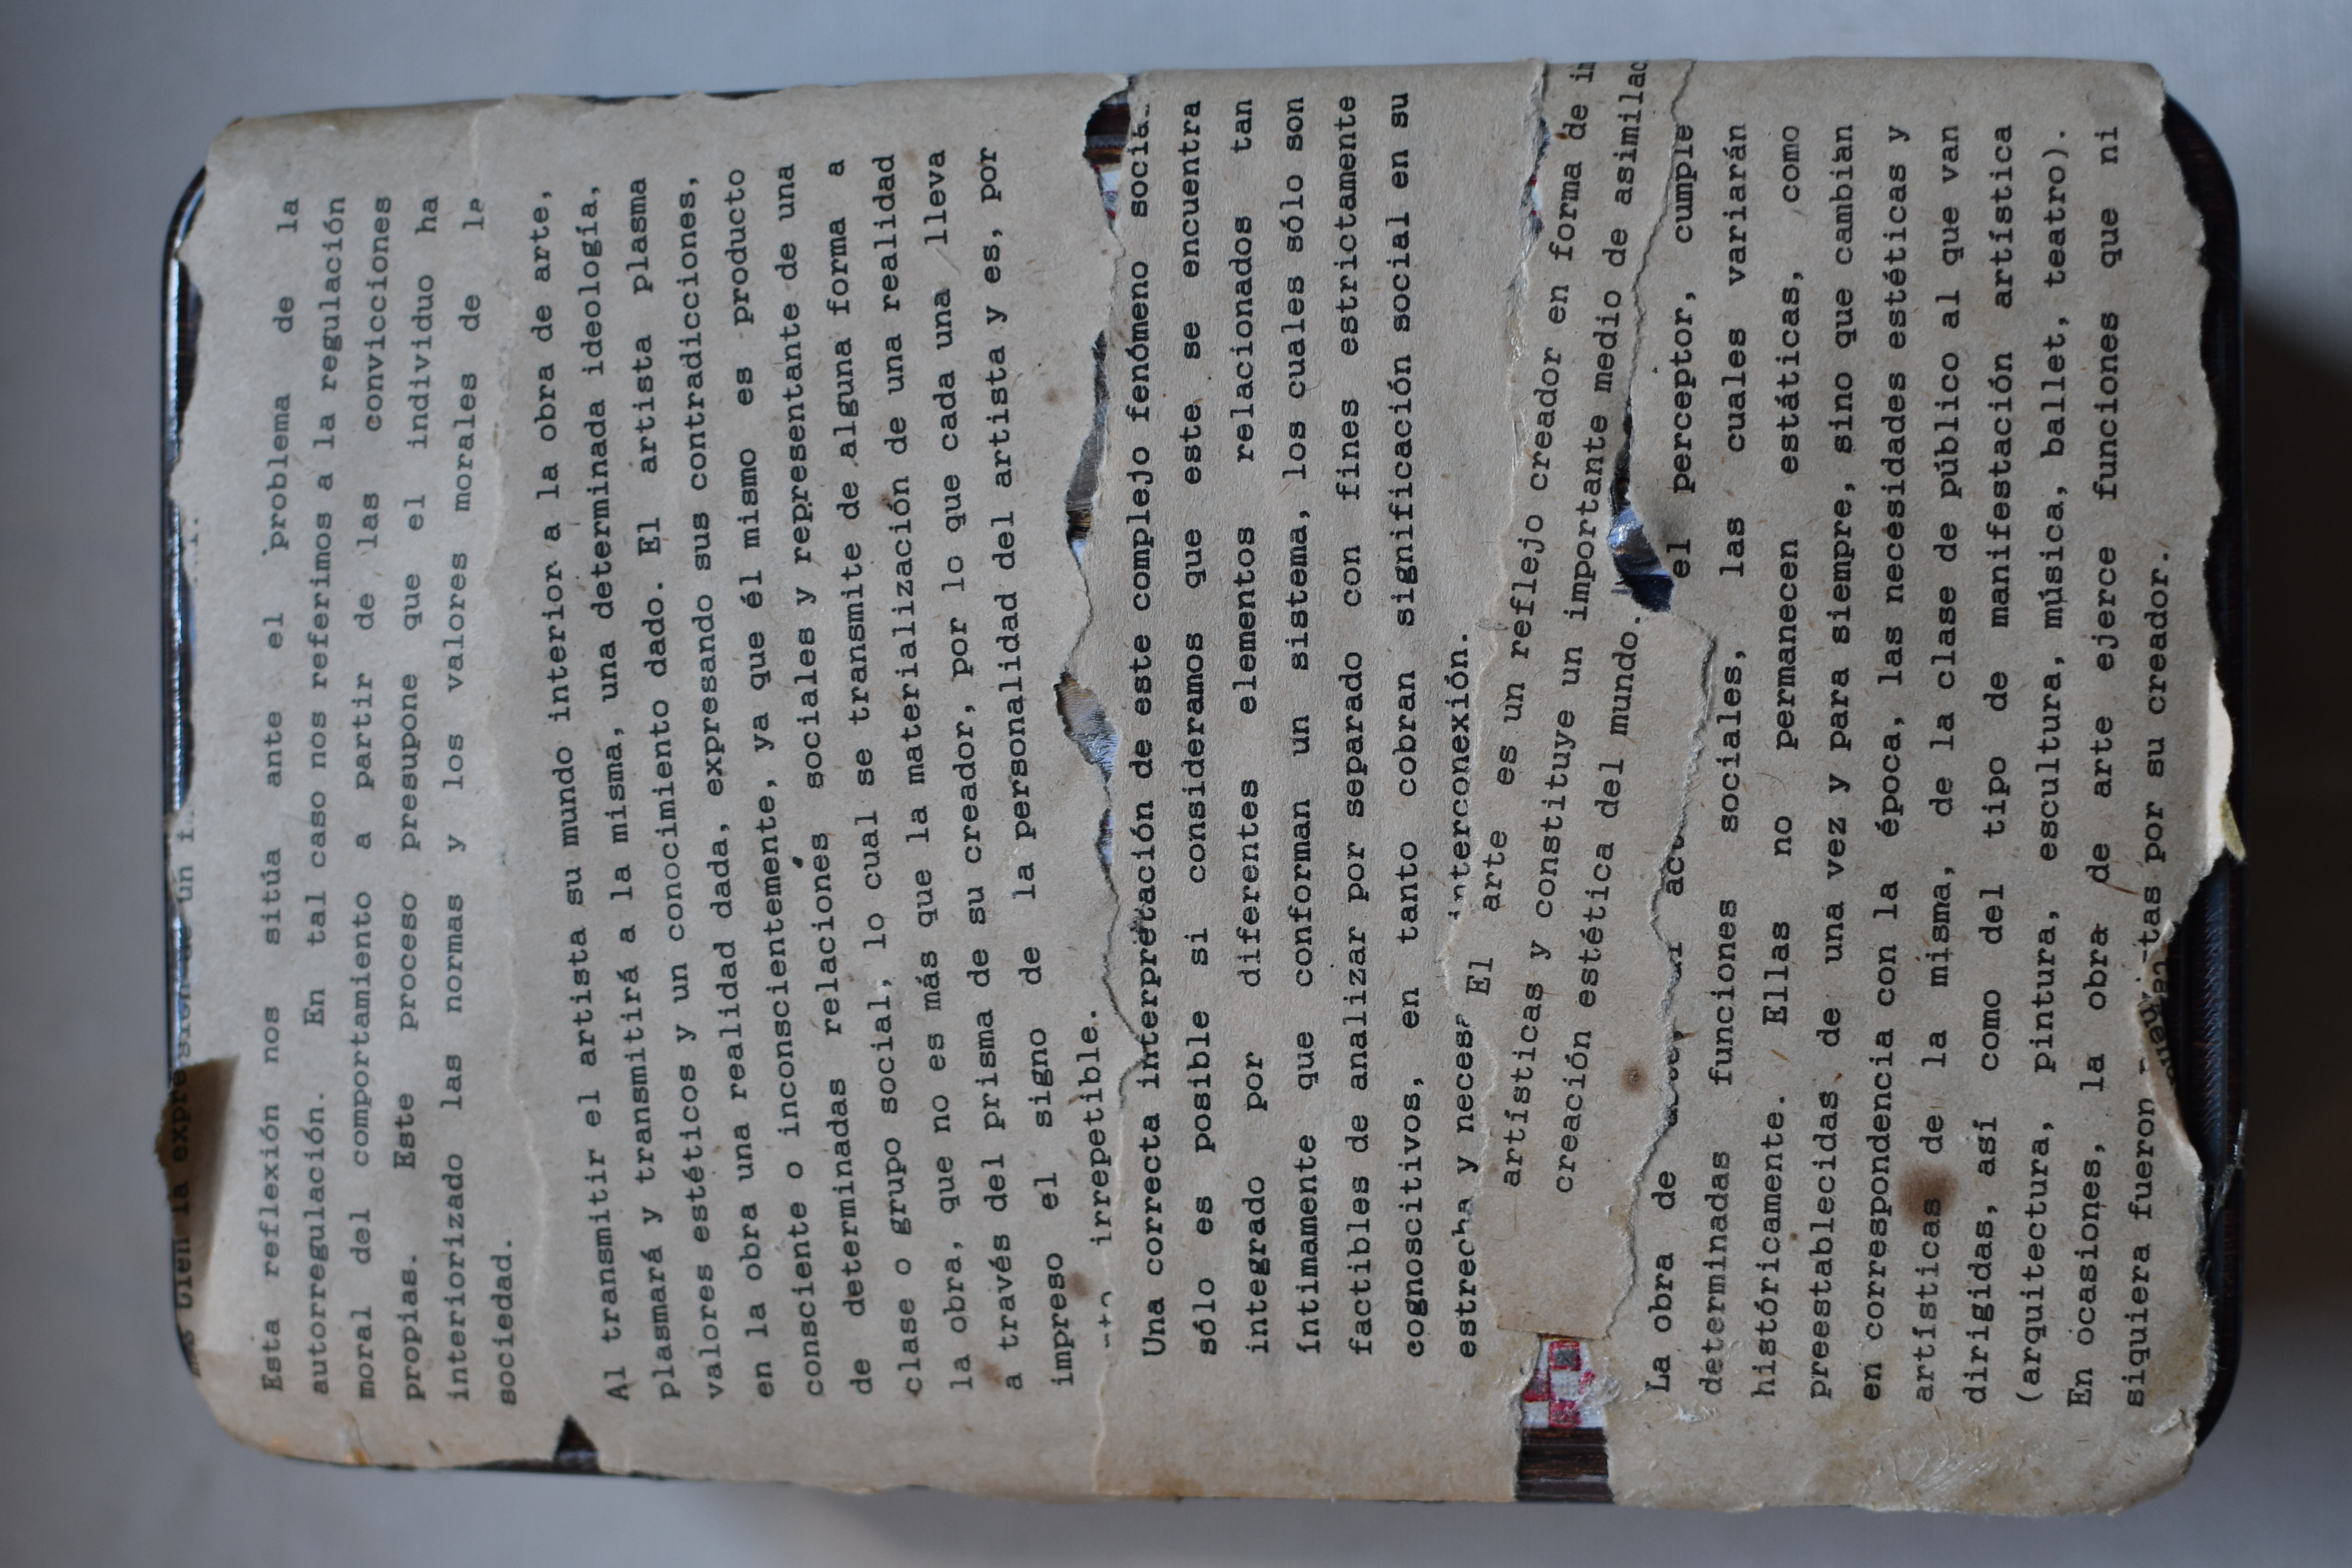 bien la expresión de un
Esta reflexión nos sitúa ante el problema de la
autorregulación. En tal caso nos referimos a la regulación
moral del comportamiento a partir de las convicciones
propias. Este proceso presupone que el individuo ha
interiorizado las normas y los valores morales de la
sociedad.
Al transmitir el artista su mundo interior a la obra de arte,
plasmará y transmitirá a la misma, una determinada ideología,
valores estéticos y un conocimiento dado. El artista plasma
en la obra una realidad dada, expresando sus contradicciones,
consciente o inconscientemente, ya que él mismo es producto
de determinadas relaciones sociales y representante de una
clase o grupo social, lo cual se transmite de alguna forma a
la obra, que no es más que la materialización de una realidad
a través del prisma de su creador, por lo que cada una lleva
impreso el signo de la personalidad del artista y es, por
irrepetible.
Una correcta interpretación de este complejo fenómeno
sólo es posible si consideramos que este se encuentra
integrado por diferentes elementos relacionados tan
íntimamente que conforman un sistema, los cuales sólo son
factibles de analizar por separado con fines estrictamente
cognoscitivos, en tanto cobran significación social en su
estrecha y neces interconexión.
El arte es un reflejo creador en forma de
artísticas y constituye un importante medio de asimilac
creación estética del mundo.
La obra de el perceptor, cumple
determinadas funciones sociales, las cuales variarán
históricamente. Ellas no permanecen estáticas, como
preestablecidas de una vez y para siempre, sino que cambian
en correspondencia con la época, las necesidades estéticas y
artísticas de la misma, de la clase de público al que van
dirigidas, así como del tipo de manifestación artística
(arquitectura, pintura, escultura, música, ballet, teatro).
En ocasiones, la obra de arte ejerce funciones que ni
siquiera fueron tas por su creador.